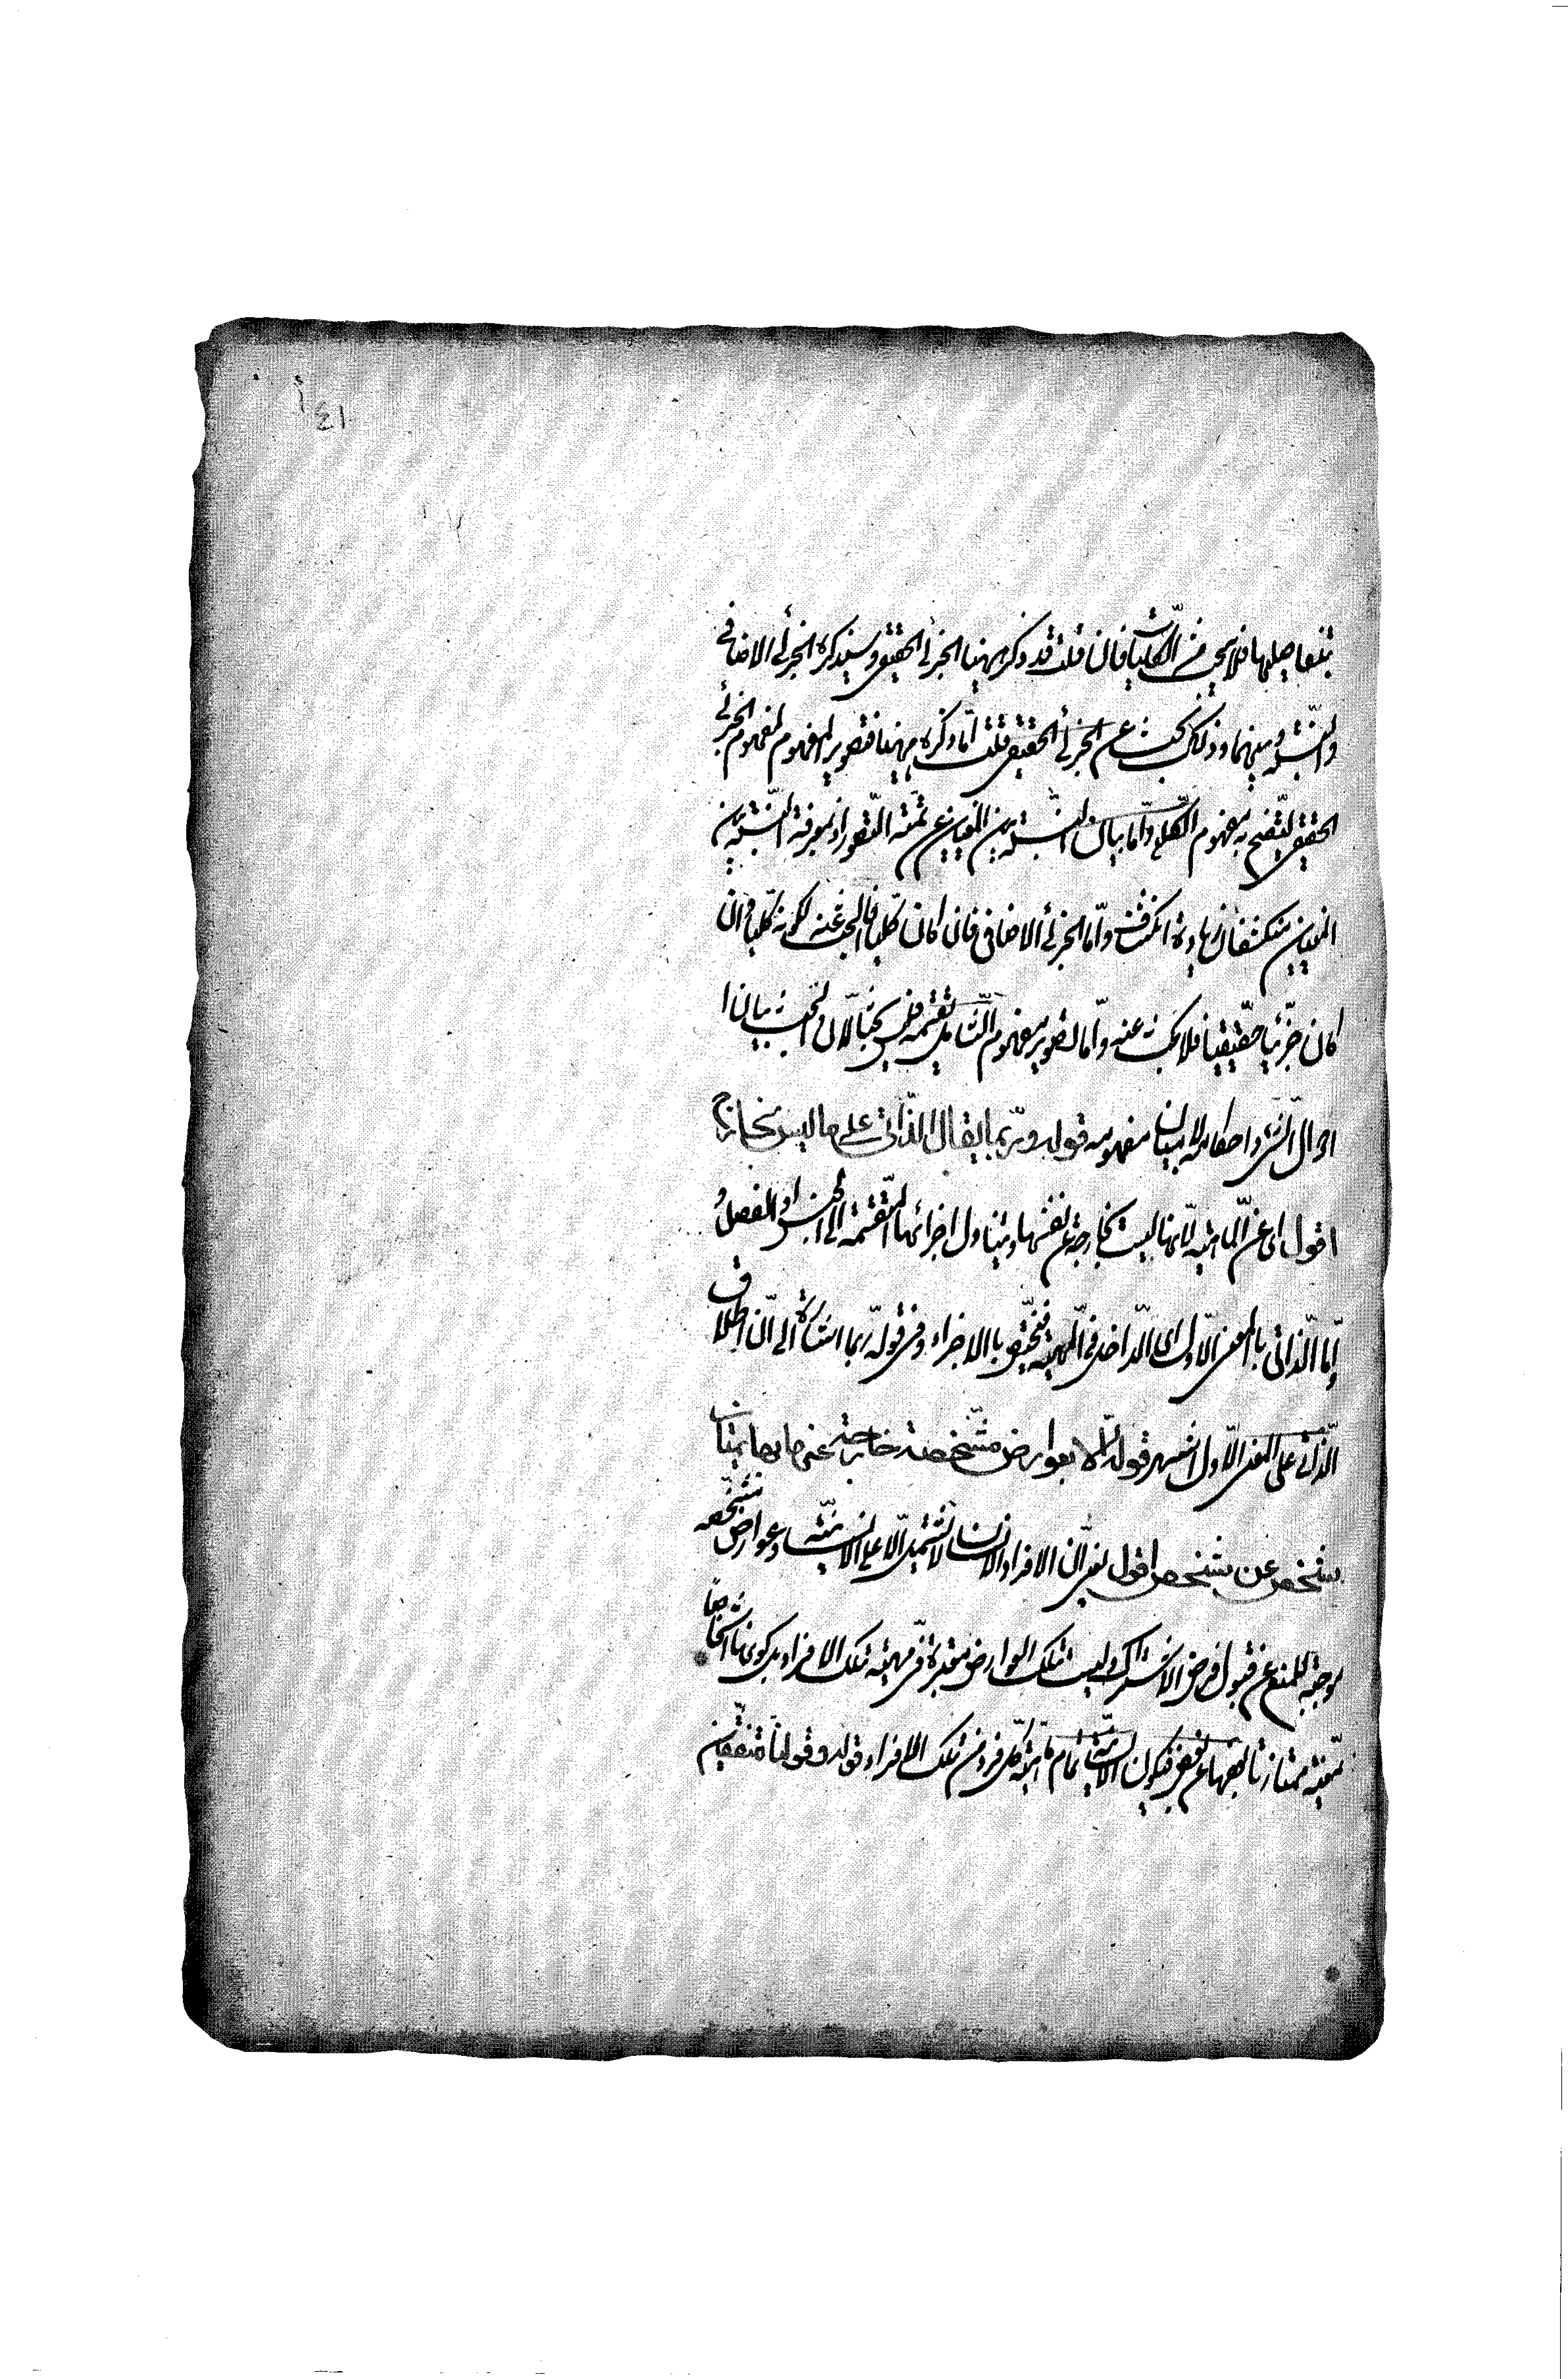 ٤١ أ
بتفاصيلها فلا بحث من الكليات فان قلت قد ذكر ههنا الجزئي الحقيقي وسيذكر الجزئي الاضافي
والنسبة بينهما وذلك بحث عن الجزئي الحقيقي قلت اما ذكره ههنا فتصوير لمفهوم الجزئي
الحقيقي ليتضح به مفهوم الكلي واما بيان النسبة بين المعنيين فمن تتمة التصور اذ بمعرفة النسبة بين
المعنيين ينكشفان زيادة انكشاف واما الجزئي الاضافي فان كان كليا فالبحث عنه لكونه كليا وان
كان جزئيا حقيقيا فلا بحث عنه واما تصوير مفهومه الشامل لقسميه فليس بحثا لان البحث بيان ا
احوال الشيء واحكامه لا بيان مفهومه قوله وربما يقال الذاتي على ما ليس بخارج
اقول اي عن الماهية لانها ليست بخارجة عن نفسها ويتناول اجزائها المنقسمة الى الجنس والفصل و
اما الذاتي بالمعنى الاول اي الداخل في المهية فيختص بالاجزاء وفي قوله ربما اشارة الى ان اطلاق
الذاتي على المعنى الاول اشهر قوله الا بعوارض مشخصة خارجة عنها بها يمتاز
شخص عن شخص اقول يعني ان الافراد الانسان لا تشتمل الا على الانسانية وعوارض مشخصة
موجبة للمنع عن قبول فرض الاشتراك وليست تلك العوارض معتبرة في مهية تلك الافراد بل كونها اشخاصا
معينة ممتازة بعضها عن بعض فيكون الانسانية تمام ماهية كل فرد من تلك الافراد قوله وقولنا متفقين